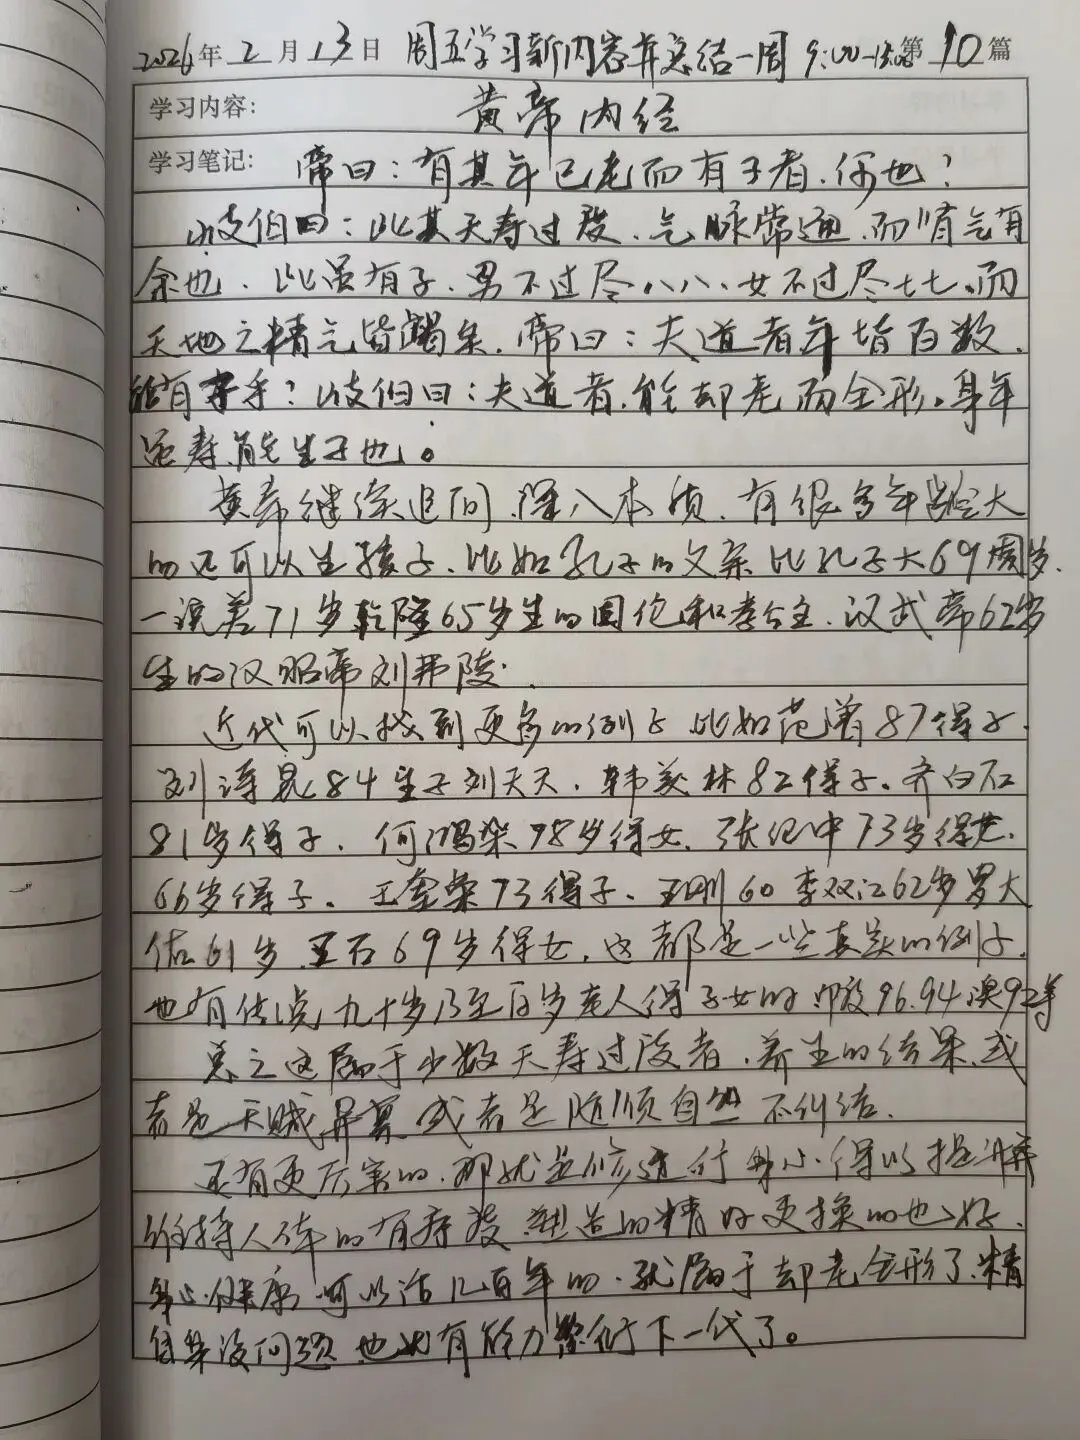 2026年2月13日 周五学习新内容并总结一周 9:00-15:00 第10篇
学习内容: 黄帝内经
学习笔记: 帝曰:有其年已老而有子者,何也?
岐伯曰:此其天寿过度,气脉常通,而肾气有
余也、此虽有子、男不过尽八八、女不过尽七七、而
天地之精气皆竭矣。帝曰:夫道者年皆百数,
能有子乎?岐伯曰:夫道者,能却老而全形。身年
虽寿,能生子也。
黄帝继续追问,深入本质,有很多年龄大
的还可以生孩子、比如孔子的父亲比孔子大69周岁.
一说差71岁乾隆65岁生的固伦和孝公主.汉武帝62岁
生的汉昭帝刘弗陵.
近代可以找到更多的例子比如范曾87得子.
刘诗昆84生子刘天天、韩美林82得子。齐白石
81岁得子、何鸿燊78岁得女、张纪中73岁得女.
66岁得子。王奎荣73得子、王刚60李双江62岁罗大
佑61岁、王石69岁得女,这都是一些真实的例子,
也有传说九十岁乃至百岁老人得子女的印度96.94澳92等
总之这属于少数天寿过度者,养生的结果,或
者是天赋异禀或者是随顺自然不纠结.
还有更厉害的,那就是修道付身心得以提升
维持人体的有序度 制造的精好更换的也好.
身心健康可以活几百年的、就属于却老全形了精
自然没问题 也就有能力繁衍下一代了。